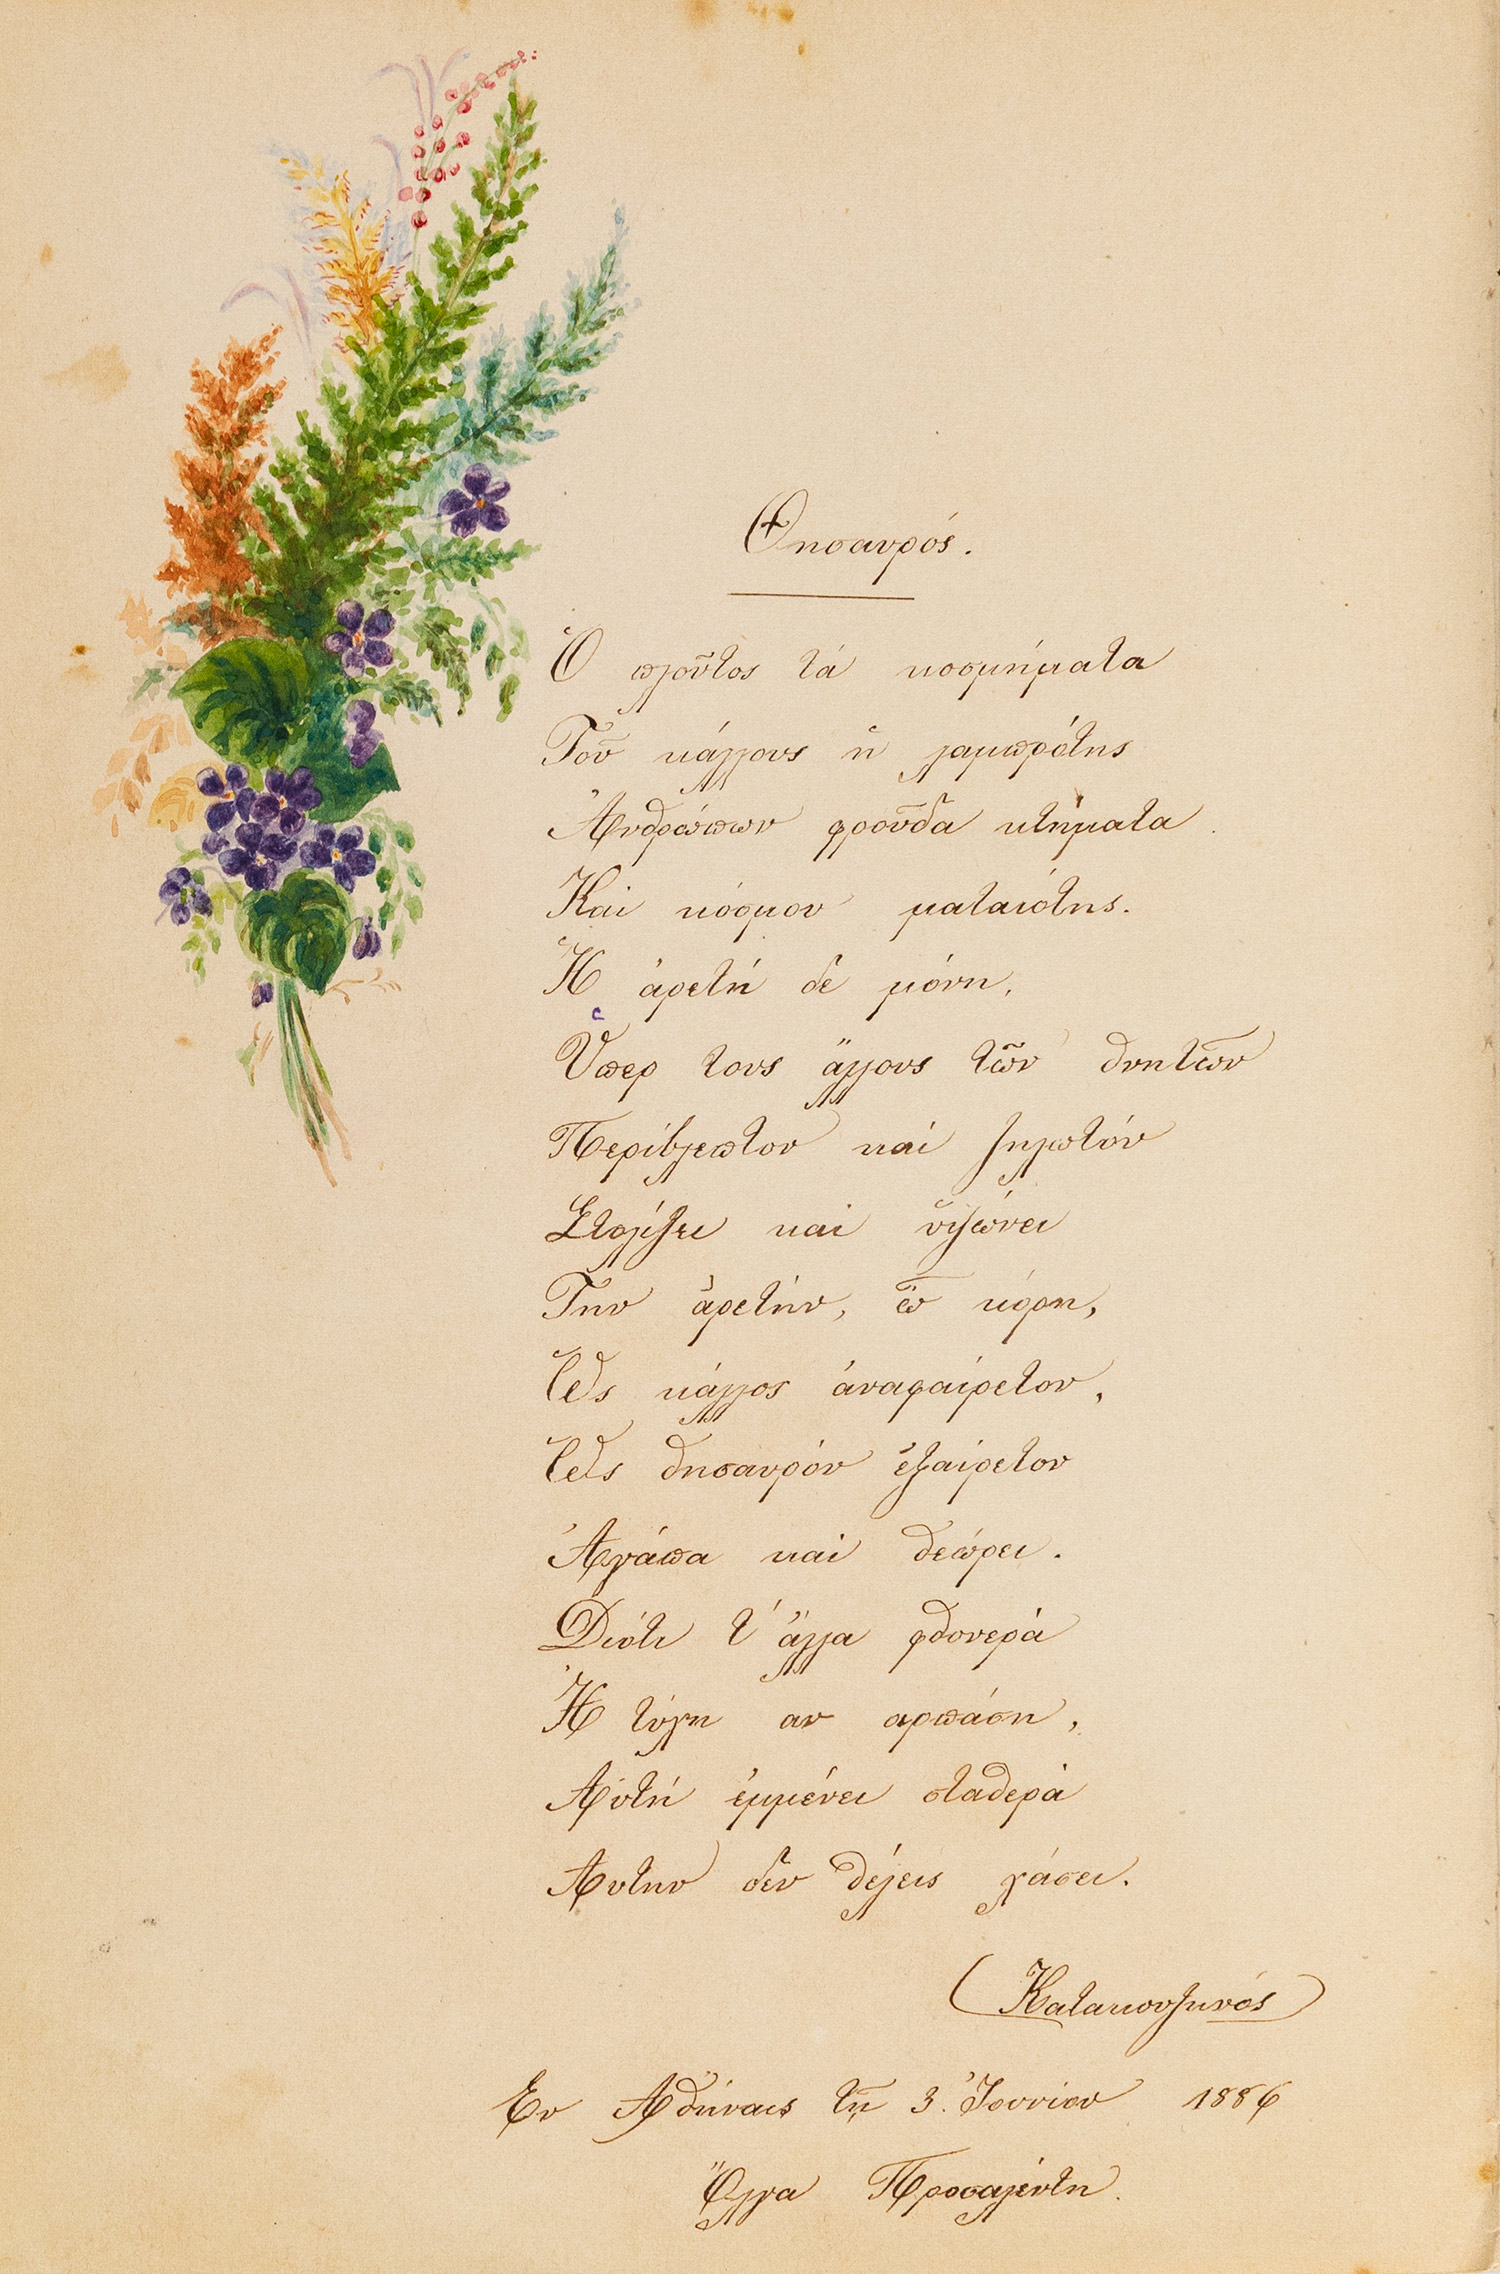 Θησαυρός.
Ὁ πλοῦτος τά κοσμήματα
Τοῦ κάλλους ἡ λαμπρότης
Ἀνθρώπων φροῦδα κτήματα
Και κόσμου ματαιότης.
Ἡ ἀρετή δε μόνη,
Ὑπερ τους ἄλλους τῶν θνητῶν
Περίβλεπτον καί ζηλωτόν
Στολίζει και ὑψώνει
Την ἀρετήν, ὦ κόρη,
Ὡς κάλλος ἀναφαίρετον,
Ὡς θησαυρόν ἐξαίρετον
Ἀγάπα και θεώρει.
Διότι τ' ἄλλα φθονερά
Ἡ τύχη αν αρπάση,
Αὐτή ἐμμένει σταθερά
Αυτην δεν θέλεις χάσει.
(Κατακουζηνός)
Εν Ἀθήναις τῇ 3. Ἰουνίου 1886
Ὄλγα Προσαλέντη.